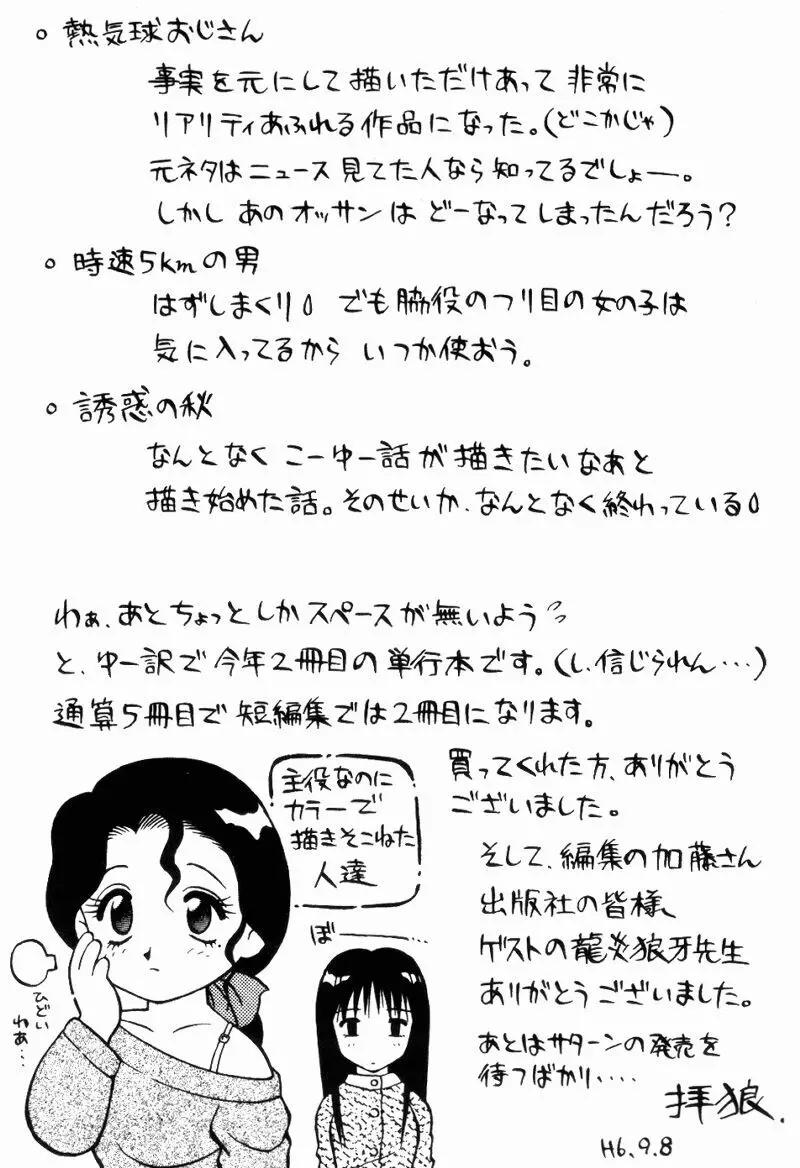 ○ 熱気球おじさん
事実を元にして描いただけあって 非常に
リアリティあふれる作品になった。(どこかじゃ)
元ネタはニュース見てた人なら知ってるでしょー。
しかし あのオッサンは どーなってしまったんだろう?
○ 時速5kmの男
はずしまくり でも脇役のつり目の女の子は
気に入ってるから いつか使おう。
○ 誘惑の秋
なんとなく こーゆー話が描きたいなあと
描き始めた話。そのせいか、なんとなく終わっている
わぁ、あとちょっとしかスペースが無いよう
と、ゆー訳で今年2冊目の単行本です。(し、信じられん…)
通算5冊目で短編集では2冊目になります。
買ってくれた方、ありがとう
ございました。
そして、編集の加藤さん
出版社の皆様、
ゲストの龍炎狼牙先生
ありがとうございました。
あとはサターンの発売を
待つばかり‥‥
拝狼.
H6.9.8
主役なのに
カラーで
描きそこねた
人達
ひどい
わぁ…
ぼーー